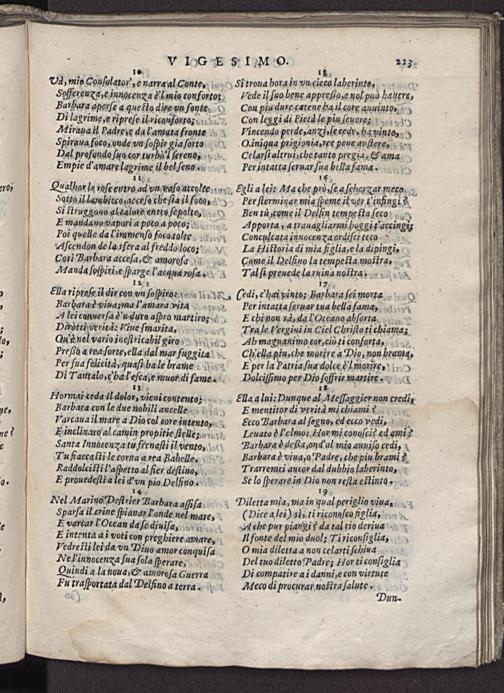 VIGESIMO. 223
10
Và, mio Consolator', e narra al Conte,
Sofferenza, e innocenza è 'l mio conforto;
Barbara aperse a questo dire un fonte
Di lagrime, e riprese il riconforto;
Miraua il Padre, e da l'amata fronte
Spiraua foco, onde un sospir già sorto
Dal profondo suo cor turbò 'l sereno,
Empie d'amare lagrime il bel seno.
11
Qualhor le rose entro ad un vaso accolte
Sotto il lambicco acceso che sia il foco,
Si struggono al calor entro sepolte,
E mandano vapori a poco a poco;
Poi quelle da l'immenso foco tolte
Ascendon de la sfera al freddo loco;
Così Barbara accesa, & amorosa
Manda sospiri, e sparge l'acqua rosa.
12
Ella riprese il dir con un sospiro:
Barbara è viua; ma l'amara vita
A lei conuersa è 'n duro aspro martiro;
Dirotti verità: Viue smarita,
Qu'è nel vario inestricabil giro
Presso a rea sorte, ella dal mar fuggita
Per sua felicità, quasi ha le brame
Di Tantalo, c'ha l'esca, e muor di fame.
13
Hormai ceda il dolor, vieni contento;
Barbara con le due nobili ancelle
Varcaua il mare a Dio col core intento,
E inclinaro al camin propitie stelle;
Santa Innocenza tu frenasti il vento,
Tu fiaccasti le corna a rea Babelle,
Raddolcisti l'aspetto al fier destino,
E prouedesti a lei d'un pio Delfino.
14
Nel Marino Destrier Barbara assisa
Sparsa il crine spianar l'onde nel mare,
E varcar l'Ocean da se diuisa,
E intenta a i voti con preghiere amare,
Vedresti lei da un Diuo amor conquisa
Ne l'innocenza sua sola sperare,
Quindi a la noua, & amorosa Guerra
Fu trasportata dal Delfino a terra.
15
Si troua hora in un cieco laberinto,
Vede il suo bene appresso, e nol può hauere,
Con più dure catene ha il core auuinto,
Con leggi di Pietà le più seuere;
Vincendo perde, anzi, se cede, ha vinto,
O iniqua prigionia, ree pene austere,
Celarsi altrui, che tanto pregia, & ama
Per intatta seruar sua bella fama.
16
Egli a lei: Ma che prò, se a scherzar meco
Per sterminar mia speme il ver l'infingi?
Ben tù, come il Delfin tempesta seco
Apporta, a trauagliarmi hoggi t'accingi;
Conculcata innocenza ordisci teco
La Historia di mia figlia, e la dipingi,
Come il Delfino la tempesta mostra,
Tal si preuede la ruina nostra.
17
Cedi, c'hai vinto; Barbara sei morta
Per intatta seruar tua bella fama,
E chi non sà, da l'Oceano absorta
Tra le Vergini in Ciel Christo ti chiama;
Ah magnanimo cor, ciò ti conforta,
Ch'ella più, che morire a Dio, non brama,
E per la Patria sua dolce è 'l morire,
Dolcissimo per Dio soffrir martire.
18
Ella a lui: Dunque al Messaggier non credi,
E mentitor di verità mi chiami?
Ecco Barbara al segno, ed ecco vedi,
Leuato è l'elmo: Hor mi conosci? ed ami?
Barbara è dessa, ond'al mio auuiso cedi,
Barbara è viua, o Padre, che più brami?
Trarremci ancor dal dubbio laberinto,
Se lo sperare in Dio non resta estinto.
19
Diletta mia, ma in qual periglio viua,
(Dice a lei) sì, ti riconosco figlia,
A che pur piangi? da tal rio deriua
Il fonte del mio duol; Ti riconsiglia,
O mia diletta a non celarti schiua
Del tuo diletto Padre; Hor ti consiglia
Di compatire a i danni, e con virtute
Meco di procurar nostra salute.
Dun-